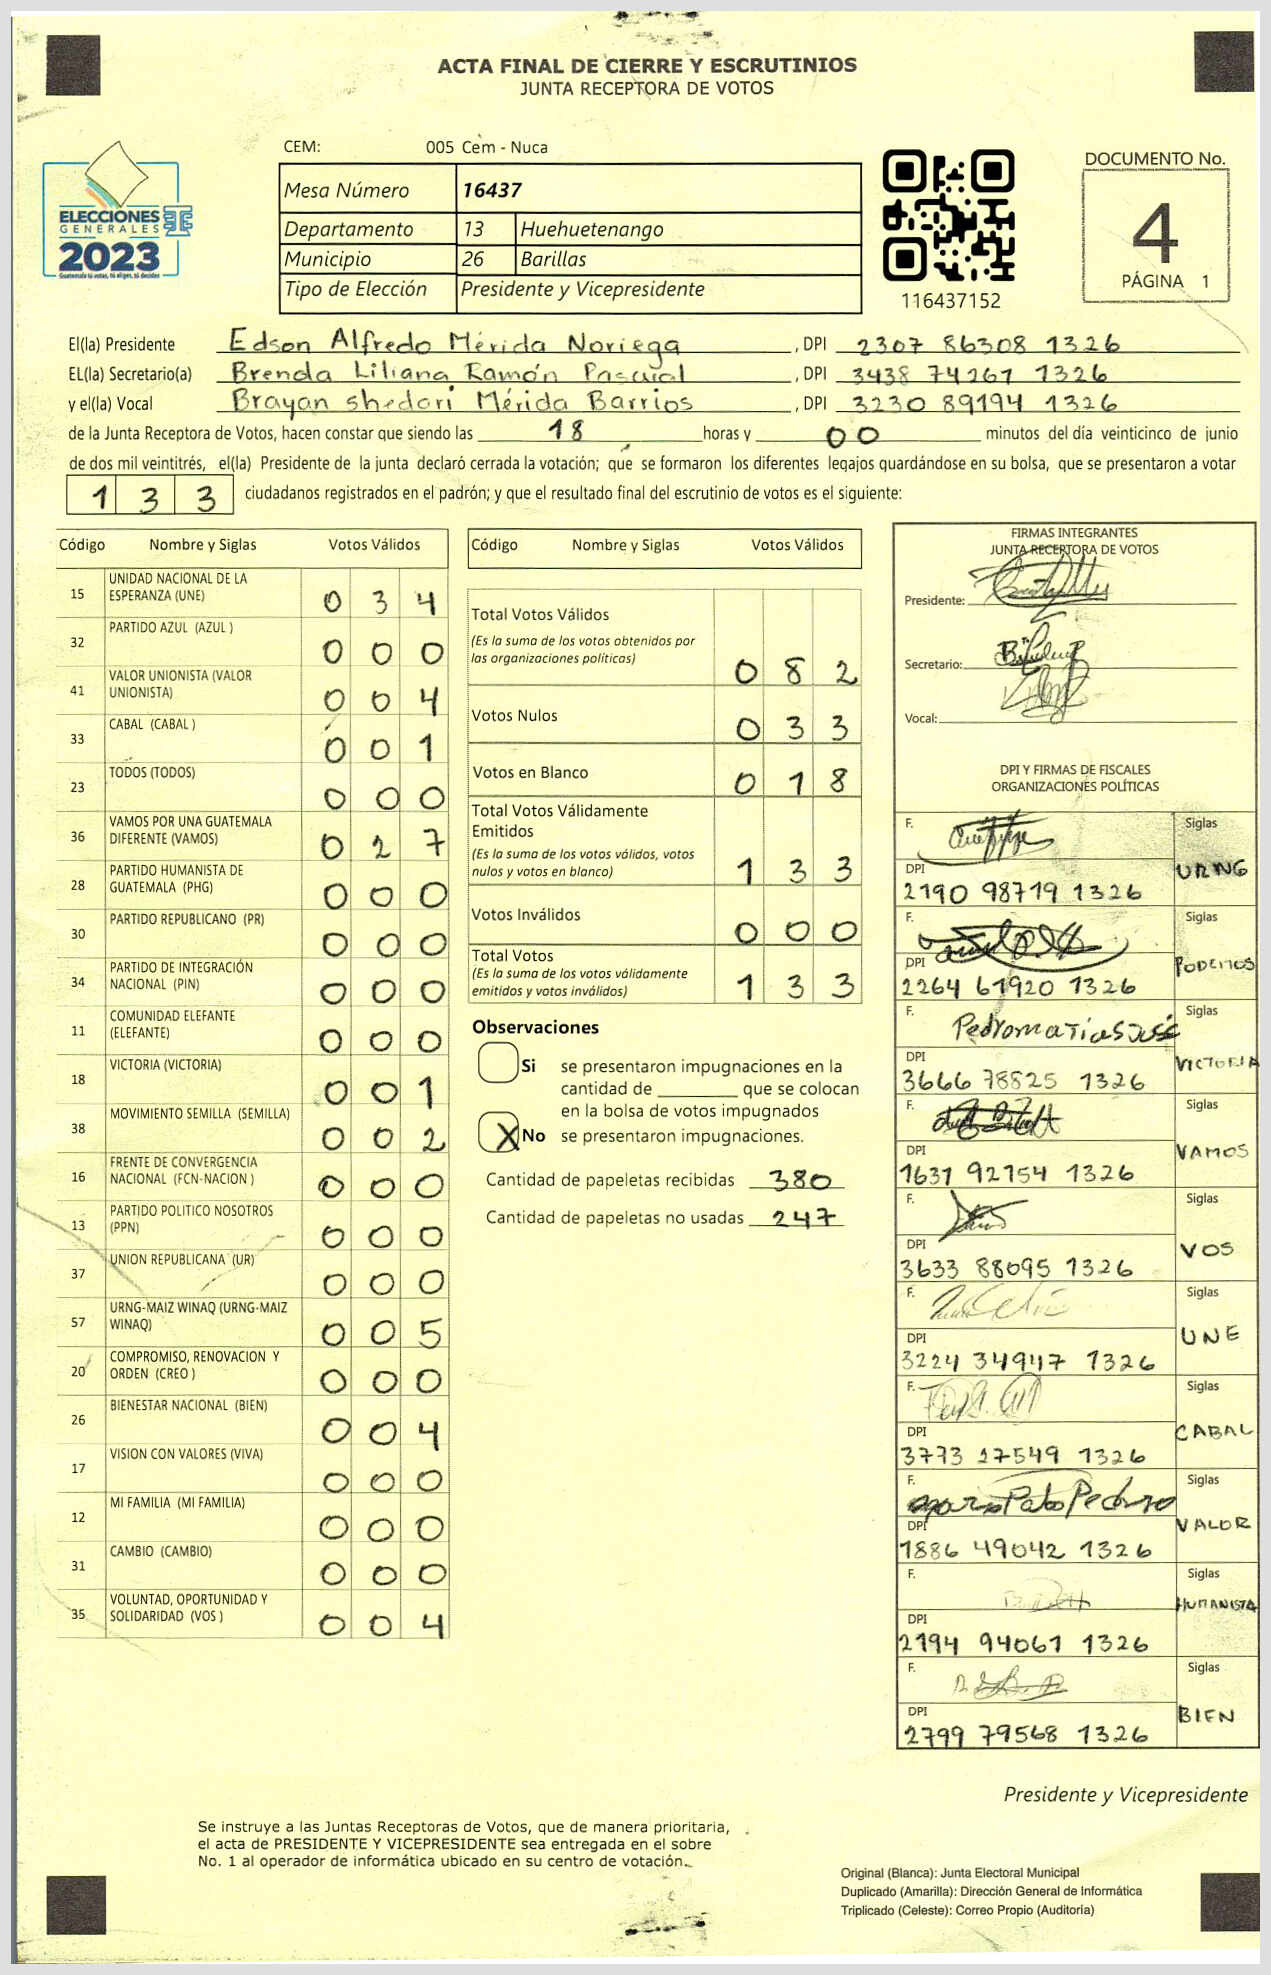 ACTA FINAL DE CIERRE Y ESCRUTINIOS
JUNTA RECEPTORA DE VOTOS
CEM: 005 Cem - Nuca
ELECCIONES
GENERALES
2023
Guatemala tú votas, tú eliges, tú decides
Mesa Número 16437
Departamento 13 Huehuetenango
Municipio 26 Barillas
Tipo de Elección Presidente y Vicepresidente
116437152
DOCUMENTO No.
4
PÁGINA 1
El(la) Presidente Edson Alfredo Mérida Noriega , DPI 2307 86308 1326
EL(la) Secretario(a) Brenda Liliana Ramón Pascual , DPI 3438 74261 1326
y el(la) Vocal Brayan Shedari Mérida Barrios , DPI 3230 89194 1326
de la Junta Receptora de Votos, hacen constar que siendo las 18 horas y 00 minutos del día veinticinco de junio
de dos mil veintitrés, el(la) Presidente de la junta declaró cerrada la votación; que se formaron los diferentes legajos guardándose en su bolsa, que se presentaron a votar
133 ciudadanos registrados en el padrón; y que el resultado final del escrutinio de votos es el siguiente:
Código Nombre y Siglas Votos Válidos
15 UNIDAD NACIONAL DE LA ESPERANZA (UNE) 0 3 4
32 PARTIDO AZUL (AZUL ) 0 0 0
41 VALOR UNIONISTA (VALOR UNIONISTA) 0 0 4
33 CABAL (CABAL ) 0 0 1
23 TODOS (TODOS) 0 0 0
36 VAMOS POR UNA GUATEMALA DIFERENTE (VAMOS) 0 2 7
28 PARTIDO HUMANISTA DE GUATEMALA (PHG) 0 0 0
30 PARTIDO REPUBLICANO (PR) 0 0 0
34 PARTIDO DE INTEGRACIÓN NACIONAL (PIN) 0 0 0
11 COMUNIDAD ELEFANTE (ELEFANTE) 0 0 0
18 VICTORIA (VICTORIA) 0 0 1
38 MOVIMIENTO SEMILLA (SEMILLA) 0 0 2
16 FRENTE DE CONVERGENCIA NACIONAL (FCN-NACION ) 0 0 0
13 PARTIDO POLITICO NOSOTROS (PPN) 0 0 0
37 UNION REPUBLICANA (UR) 0 0 0
57 URNG-MAIZ WINAQ (URNG-MAIZ WINAQ) 0 0 5
20 COMPROMISO, RENOVACION Y ORDEN (CREO ) 0 0 0
26 BIENESTAR NACIONAL (BIEN) 0 0 4
17 VISION CON VALORES (VIVA) 0 0 0
12 MI FAMILIA (MI FAMILIA) 0 0 0
31 CAMBIO (CAMBIO) 0 0 0
35 VOLUNTAD, OPORTUNIDAD Y SOLIDARIDAD (VOS ) 0 0 4
Código Nombre y Siglas Votos Válidos
Total Votos Válidos
(Es la suma de los votos obtenidos por
las organizaciones políticas) 0 8 2
Votos Nulos 0 3 3
Votos en Blanco 0 1 8
Total Votos Válidamente
Emitidos
(Es la suma de los votos válidos, votos
nulos y votos en blanco) 1 3 3
Votos Inválidos 0 0 0
Total Votos
(Es la suma de los votos válidamente
emitidos y votos inválidos) 1 3 3
Observaciones
Si se presentaron impugnaciones en la
cantidad de ________ que se colocan
en la bolsa de votos impugnados
X No se presentaron impugnaciones.
Cantidad de papeletas recibidas 380
Cantidad de papeletas no usadas 247
FIRMAS INTEGRANTES
JUNTA RECEPTORA DE VOTOS
Presidente:
Secretario:
Vocal:
DPI Y FIRMAS DE FISCALES
ORGANIZACIONES POLÍTICAS
F. Siglas
DPI URNG
2190 98719 1326
F. Siglas
DPI PODEMOS
2264 61920 1326
F. Pedro matias José Siglas
DPI VICTORIA
3666 78825 1326
F. Siglas
DPI VAMOS
1631 92154 1326
F. Siglas
DPI VOS
3633 88095 1326
F. Siglas
DPI UNE
3224 34947 1326
F. Siglas
DPI CABAL
3773 27549 1326
F. Pedro Siglas
DPI VALOR
1886 49042 1326
F. Siglas
DPI HUMANISTA
2194 94061 1326
F. Siglas
DPI BIEN
2799 79568 1326
Presidente y Vicepresidente
Se instruye a las Juntas Receptoras de Votos, que de manera prioritaria,
el acta de PRESIDENTE Y VICEPRESIDENTE sea entregada en el sobre
No. 1 al operador de informática ubicado en su centro de votación.
Original (Blanca): Junta Electoral Municipal
Duplicado (Amarilla): Dirección General de Informática
Triplicado (Celeste): Correo Propio (Auditoría)